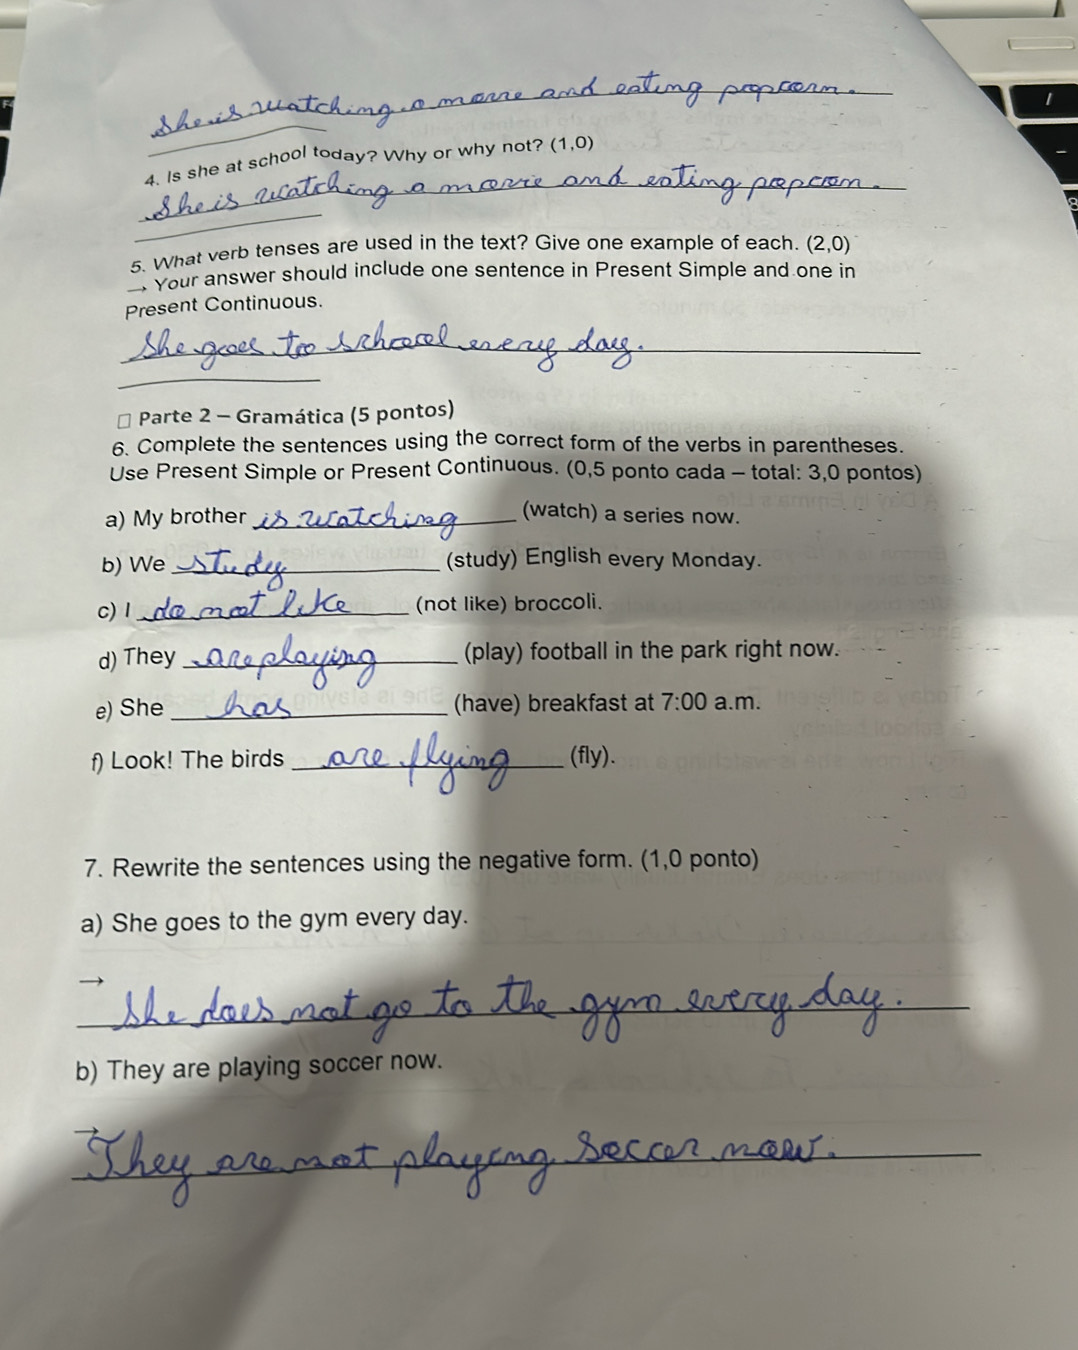 She is watching a movie and eating popcorn.
4. Is she at school today? Why or why not? (1,0)
She is watching a movie and eating popcorn.
5. What verb tenses are used in the text? Give one example of each. (2,0)
→ Your answer should include one sentence in Present Simple and one in
Present Continuous.
She goes to school every day.
□ Parte 2 – Gramática (5 pontos)
6. Complete the sentences using the correct form of the verbs in parentheses.
Use Present Simple or Present Continuous. (0,5 ponto cada – total: 3,0 pontos)
a) My brother is watching (watch) a series now.
b) We study (study) English every Monday.
c) I do not like (not like) broccoli.
d) They are playing (play) football in the park right now.
e) She has (have) breakfast at 7:00 a.m.
f) Look! The birds are flying (fly).
7. Rewrite the sentences using the negative form. (1,0 ponto)
a) She goes to the gym every day.
→ She does not go to the gym every day.
b) They are playing soccer now.
→ They are not playing soccer now.